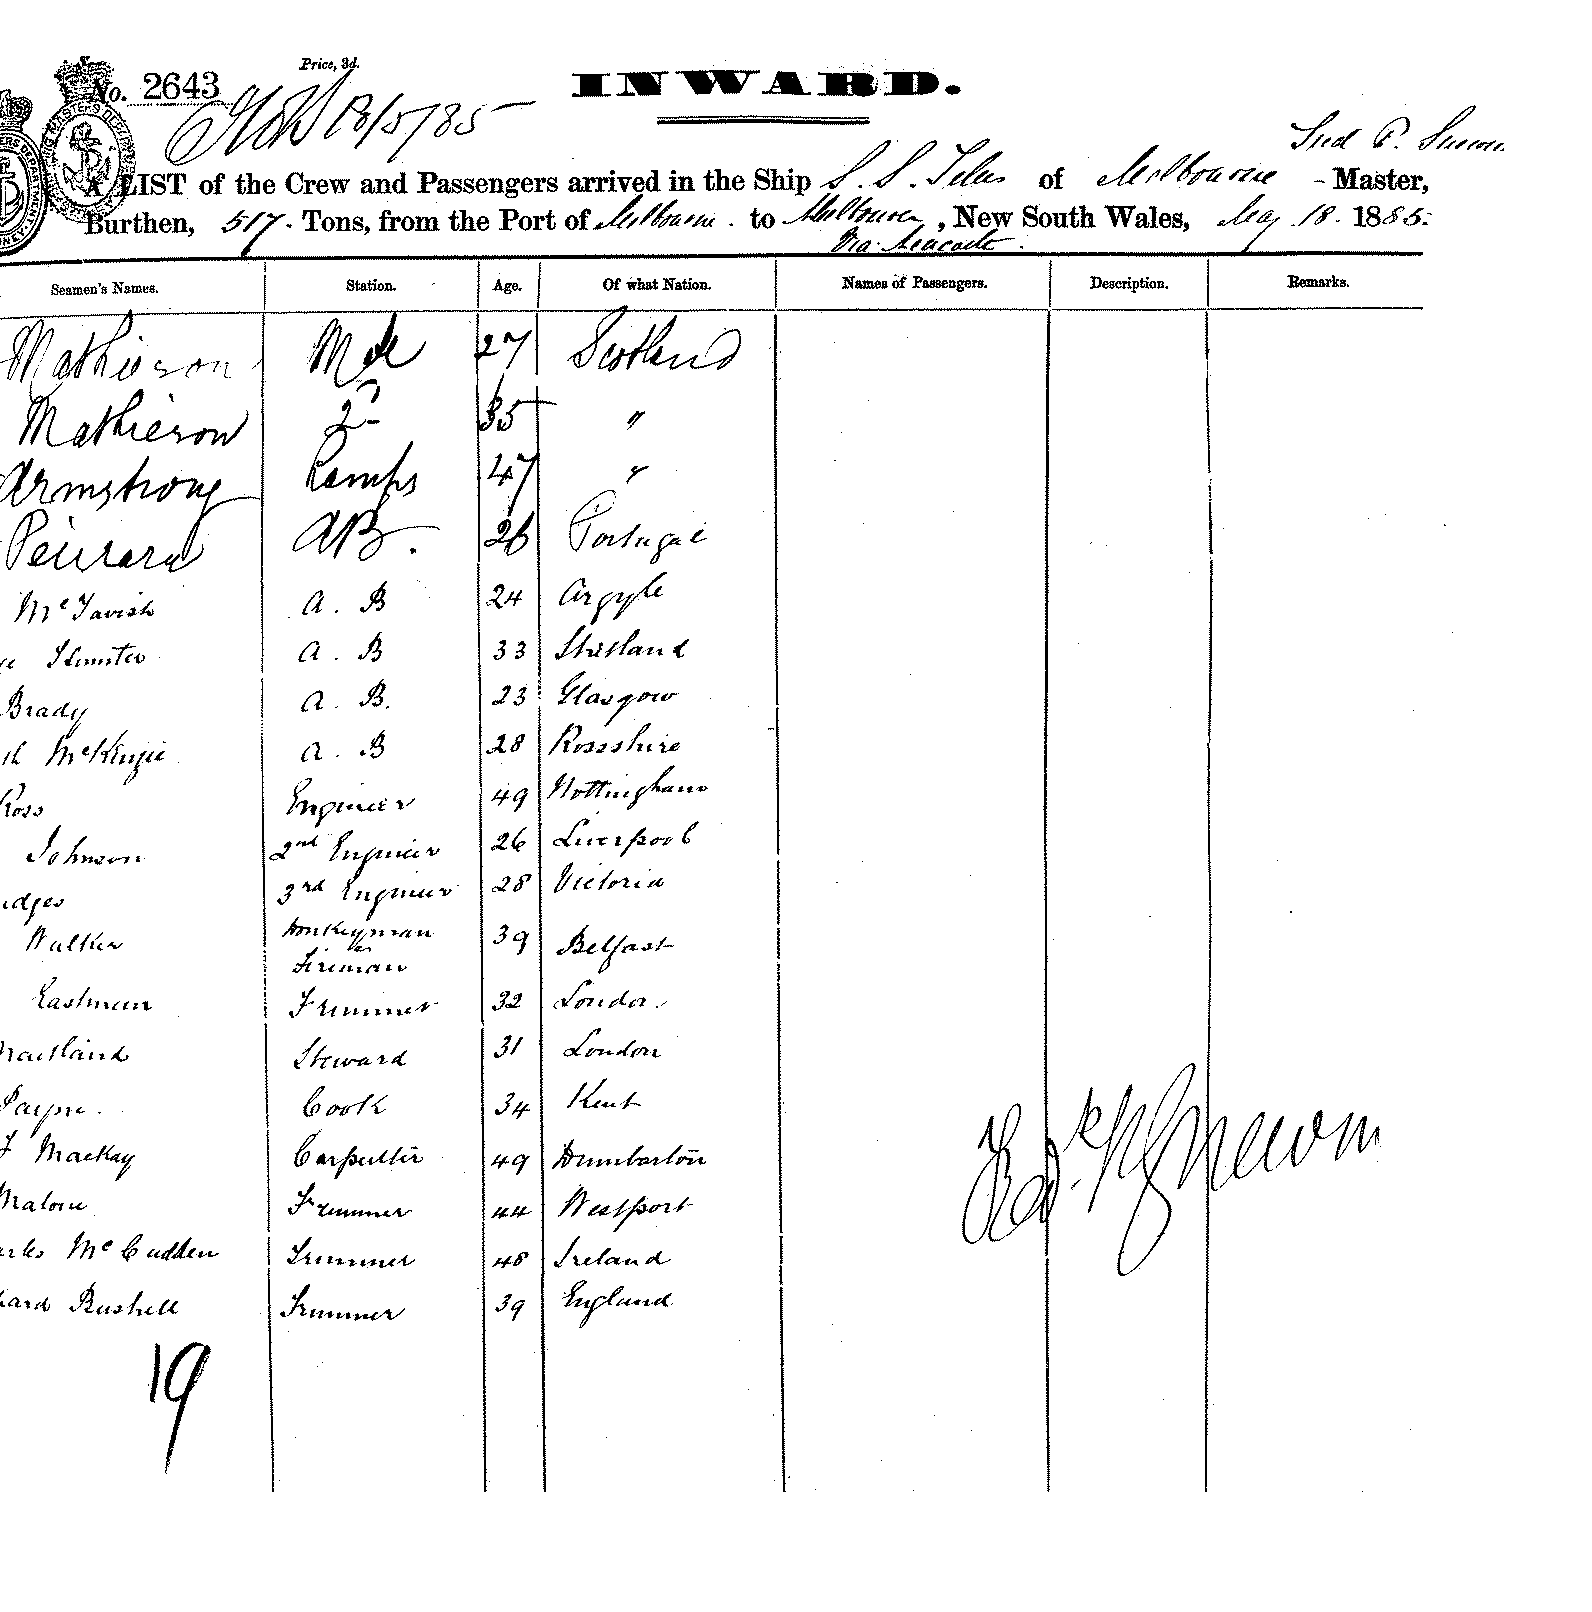 No. 2643
Price, 3d.
18/5/85
INWARD.
A LIST of the Crew and Passengers arrived in the Ship S. S. of Melbourne - Master,
Burthen, 517. Tons, from the Port of Melbourne. to Melbourne, New South Wales, May 18. 1885.
Via
Seamen's Names. Station. Age. Of what Nation. Names of Passengers. Description. Remarks.
Mathieson 27 Scotland
Mathieson 2 35 "
Armstrong Lamps 47 "
AB. 26 Portugal
McTavish A. B 24 Argyle
A. B 33 Shetland
Brady A. B. 23 Glasgow
McKenzie A. B 28 Rossshire
Ross Engineer 49 Nottingham
Johnson 2nd Engineer 26 Liverpool
3rd Engineer 28 Victoria
Walker Donkeyman 39 Belfast
Fireman
Eastman Trimmer 32 London
Maitland Steward 31 London
Payne. Cook 34 Kent
Mackay Carpenter 49 Dumbarton
Malone Trimmer 44 Westport
McCudden Trimmer 48 Ireland
Bushell Trimmer 39 England
19